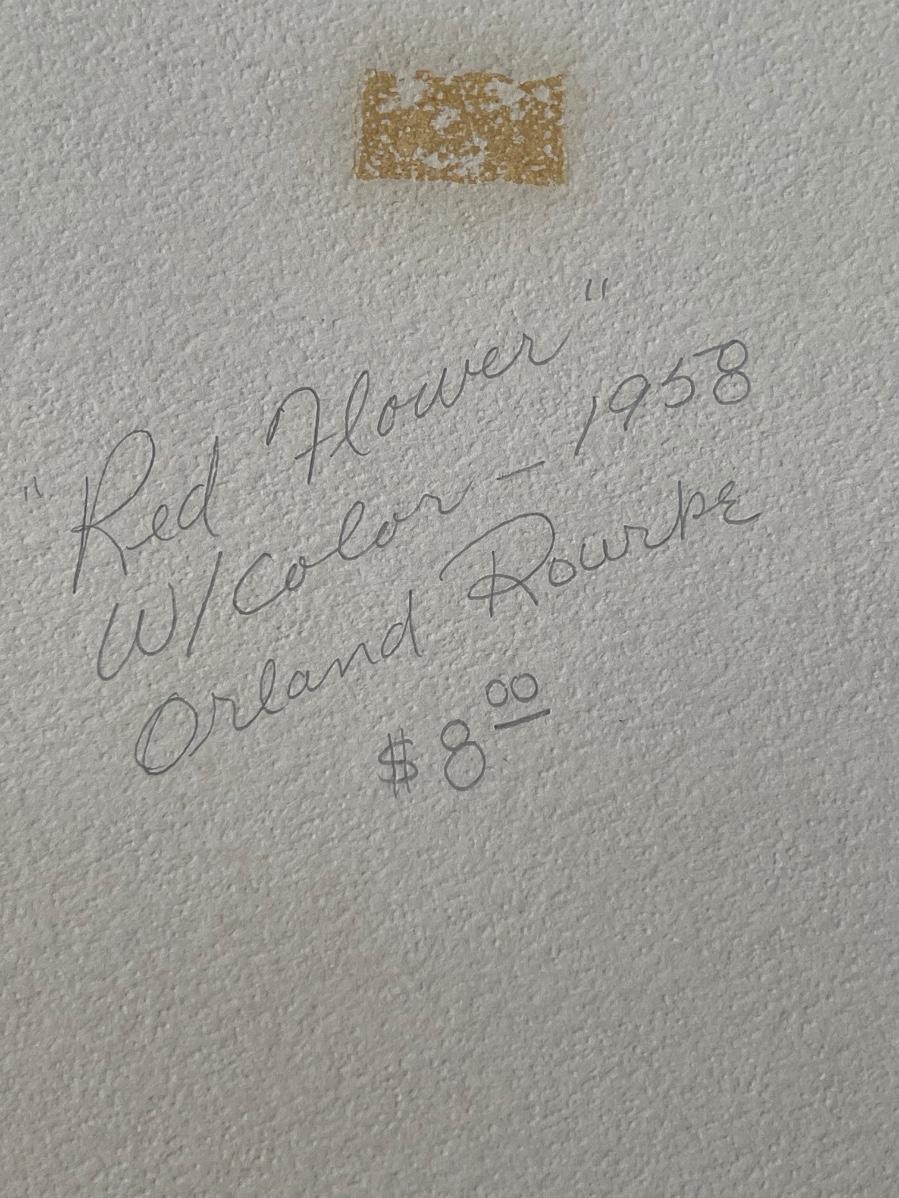 "Red Flower"
W/Color - 1958
Orland Rourke
$8.00